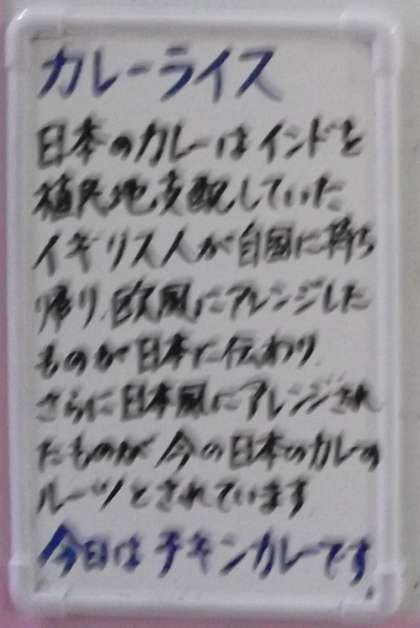 カレーライス
日本のカレーはインドを
植民地支配していた
イギリス人が自国に持ち
帰り、欧風にアレンジした
ものが日本に伝わり、
さらに日本風にアレンジされ
たものが今の日本のカレーの
ルーツとされています
今日はチキンカレーです。